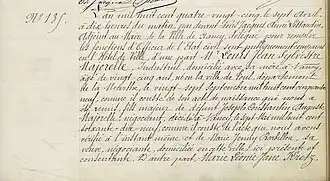 N° 135.
L'an mil huit cent quatre vingt-cinq, le sept Avril, à
dix heures du matin, par devant Nous Jacques Anne
Adjoint au Maire de la Ville de Nancy, délégué pour remplir
les fonctions d'Officier de l'Etat civil sont publiquement comparus en
l'Hôtel de Ville, d'une part M. Louis Jean Sylvestre
Majorelle, Industriel, domicilié avec sa mère à Nancy,
âgé de vingt-cinq ans, né en la ville de Toul, département
de la Meurthe, le vingt-sept Septembre mil huit cent cinquante
neuf, comme il conste de son acte de naissance qui nous a
été remis, fils majeur de défunt Joseph Constantin Auguste
Majorelle, négociant, décédé à Nancy, le sept mil huit cent
soixante-dix-neuf, comme il conste de l'acte que nous avons
vérifié à l'instant même et de Marie Jenny Barbillon, sa
veuve, négociante, domiciliée en cette Ville, ici présente et
consentante. Et d'autre part, Marie Léonie Jane Kretz